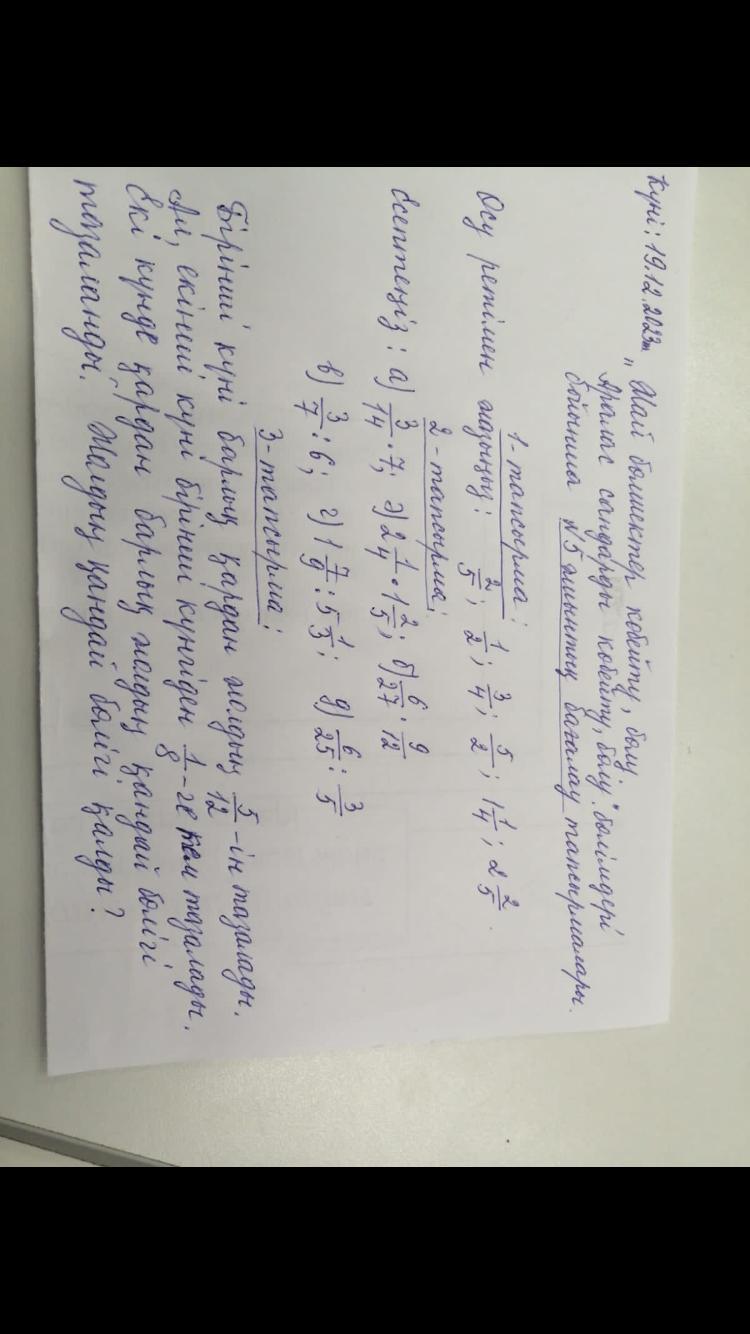 Күні: 19.12.2023ж
„Жай бөлшектер көбейту, бөлу
Аралас сандарды көбейту, бөлу." бөлімдері
бойынша №5 жиынтық бағалау тапсырмалары.
1-тапсырма:
Өсу ретімен жазыңыз: 2/5; 1/2; 3/4; 5/2; 1 1/4; 2 2/5.
2-тапсырма:
Есептеңіз: а) 3/14 · 7; ә) 2 1/4 · 1 2/5; б) 6/27 · 9/12
в) 3/7 : 6; г) 1 7/9 : 5 1/3; д) 6/25 : 3/5
3-тапсырма:
Бірінші күні барлық қардан жолдың 5/12 -ін тазалады.
Ал, екінші күні бірінші күнгіден 1/8 -ге кем тазалады.
Екі күнде қардан барлық жолдың қандай бөлігі
тазаланды. Жолдың қандай бөлігі қалды?